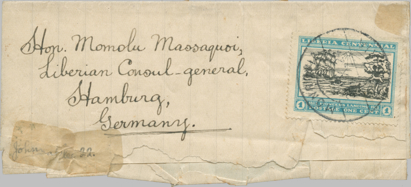 Hon. Momolu Massaquoi,
Liberian Consul-general,
Hamburg,
Germany.
LIBERIA CENTENNIAL
ONE CENT
22.